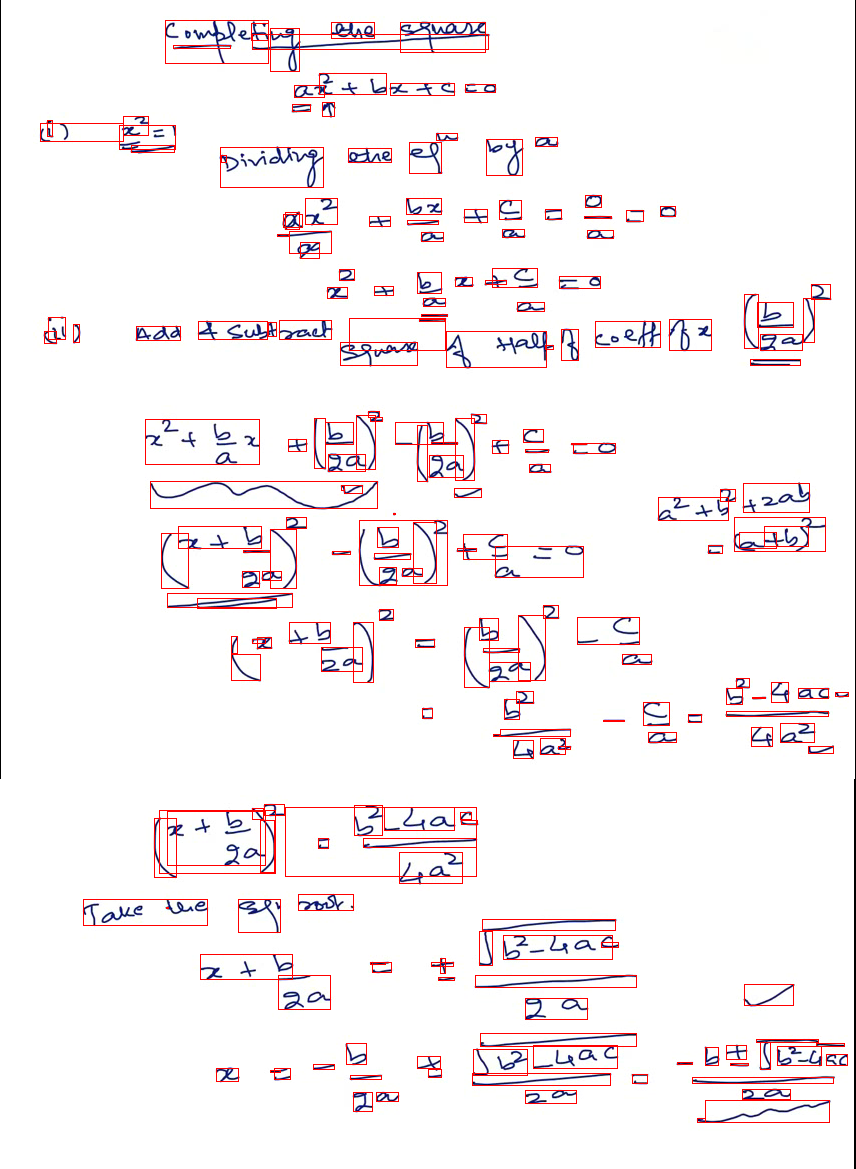 Completing the square
ax² + bx + c = 0
(i) x² = 1
Dividing the eqⁿ by a
ax²/a + bx/a + c/a = 0/a = 0
x² + b/a x + c/a = 0
(ii) Add & Subtract square of Half of coeff of x (b/2a)²
x² + b/a x + (b/2a)² - (b/2a)² + c/a = 0
a² + b² + 2ab
(x + b/2a)² - (b/2a)² + c/a = 0
= (a+b)²
(x + b/2a)² = (b/2a)² - c/a
= b²/4a² - c/a = b² - 4ac/4a²
(x + b/2a)² = b² - 4ac/4a²
Take the sq. root.
x + b/2a = ± √b² - 4ac/2a
x = - b/2a ± √b² - 4ac/2a = - b ± √b² - 4ac/2a